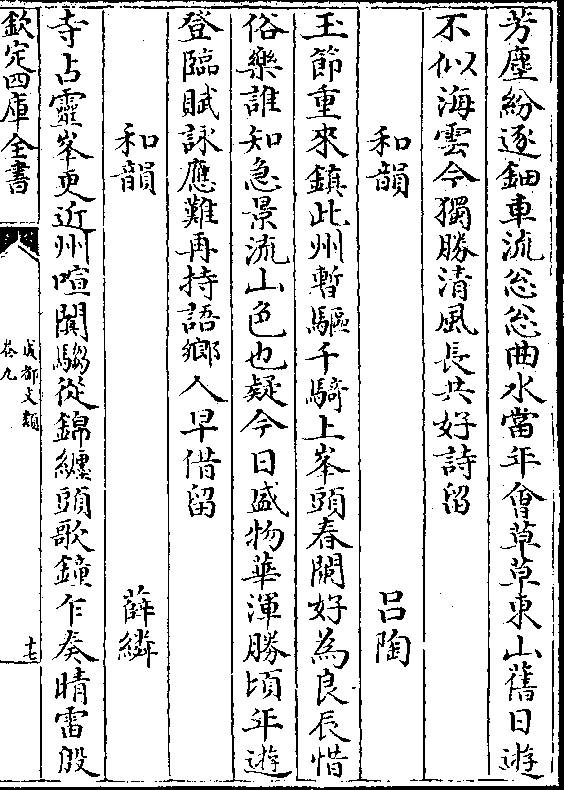 芳塵紛逐鈿車流忩忩曲水當年會草草東山舊日遊
不似海雲今獨勝清風長共好詩留
和韻　呂陶
玉節重來鎮此州暫驅千騎上峯頭春闌好為良辰惜
俗樂誰知急景流山色也疑今日盛物華渾勝頃年遊
登臨賦詠應難再持語鄉人早借留
和韻　薛繗
寺占靈峯更近州喧闐騶從錦纏頭歌鐘乍奏晴雷殷
欽定四庫全書
成都文類
卷九
十七